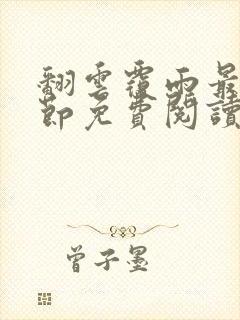 翻雲覆雨最
節免費閱讀
曾子墨